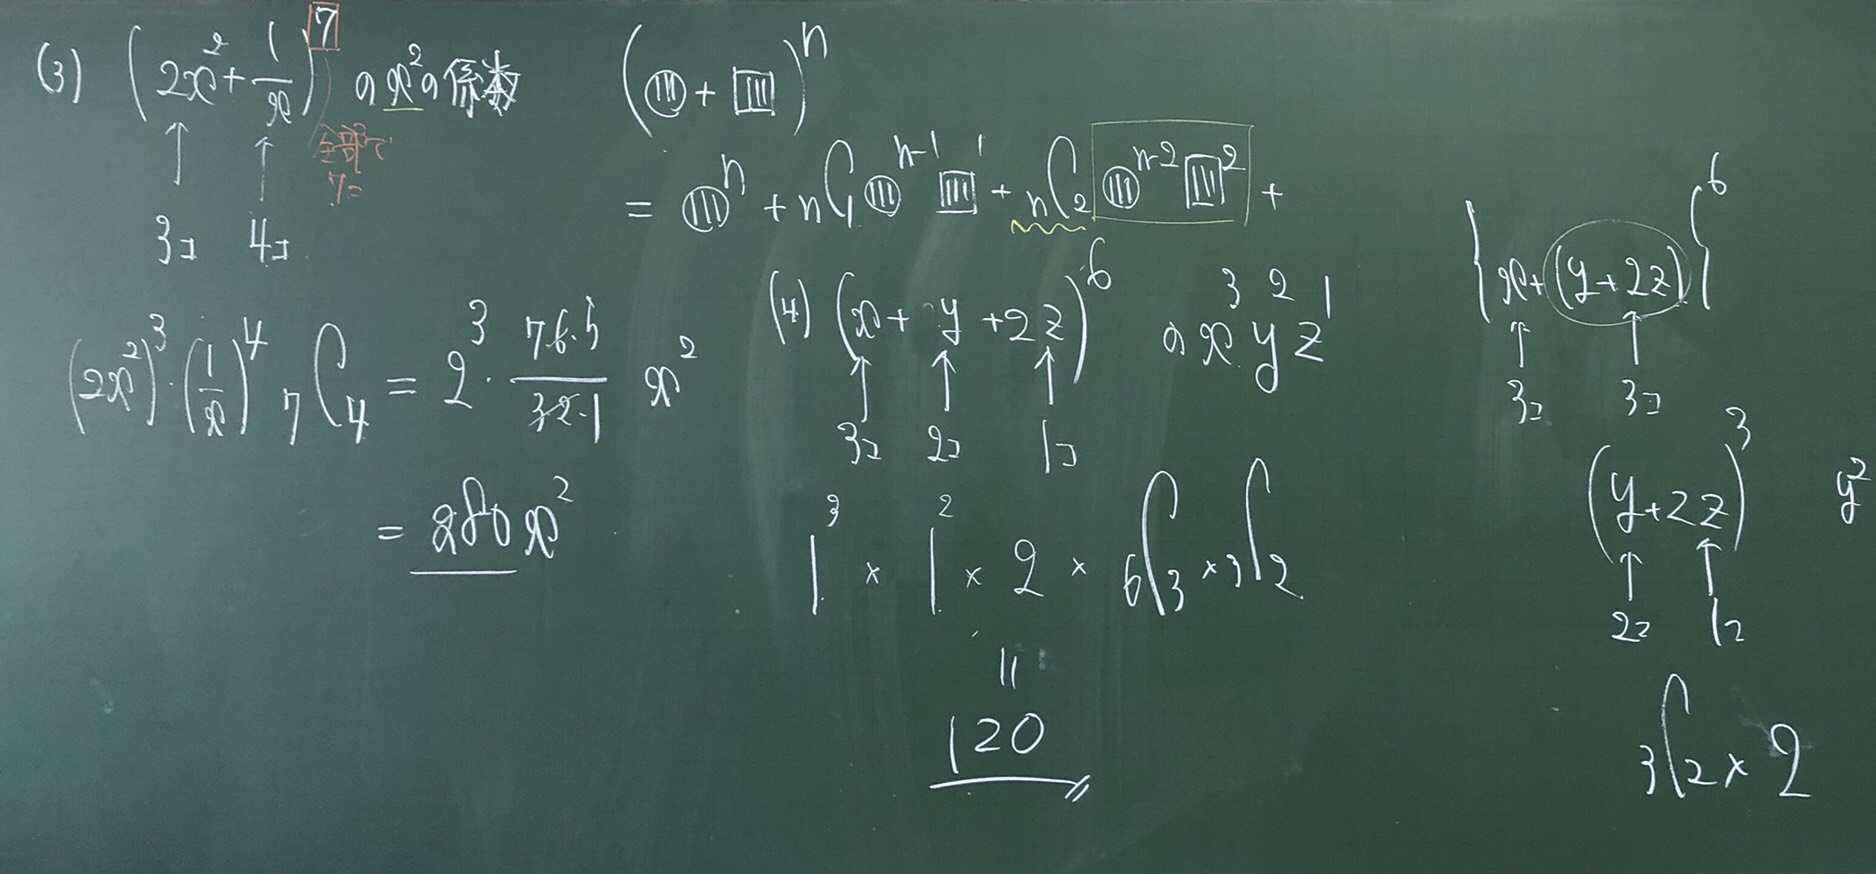 (3) (2x²+1/x)⁷ の x²の係数
↑ ↑
全部で
7コ
3コ 4コ
(2x²)³・(1/x)⁴ ₇C₄ = 2³・7・6・5/3・2・1 x²
= 280x²
(○ + □)ⁿ
= ○ⁿ + nC₁ ○ⁿ⁻¹ □¹ + nC₂ ○ⁿ⁻² □² +
(4) (x + y + 2z)⁶ の x³y²z¹
↑ ↑ ↑
3コ 2コ 1コ
1³ × 1² × 2 × ₆C₃ × ₃C₂
=
120
{x+(y+2z)}⁶
↑ ↑
3コ 3コ
(y+2z)³ y²
↑ ↑
2コ 1コ
₃C₂ × 2